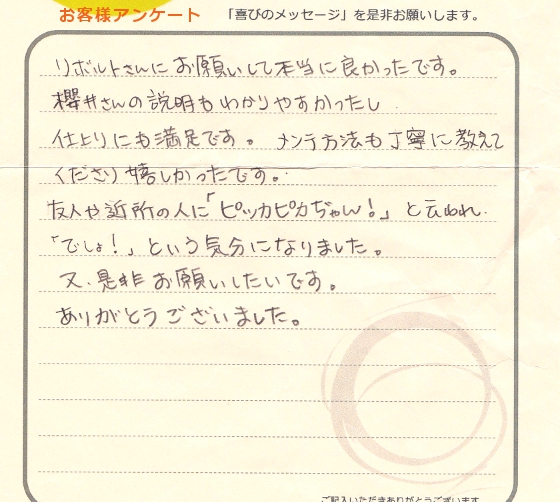 お客様アンケート 「喜びのメッセージ」を是非お願いします。
リボルトさんにお願いして本当に良かったです。
櫻井さんの説明もわかりやすかったし
仕上りにも満足です。 メンテ方法も丁寧に教えて
くださり嬉しかったです。
友人や近所の人に「ピッカピカぢゃん!」と云われ
「でしょ!」という気分になりました。
又、是非お願いしたいです。
ありがとうございました。
ご記入いただきありがとうございます